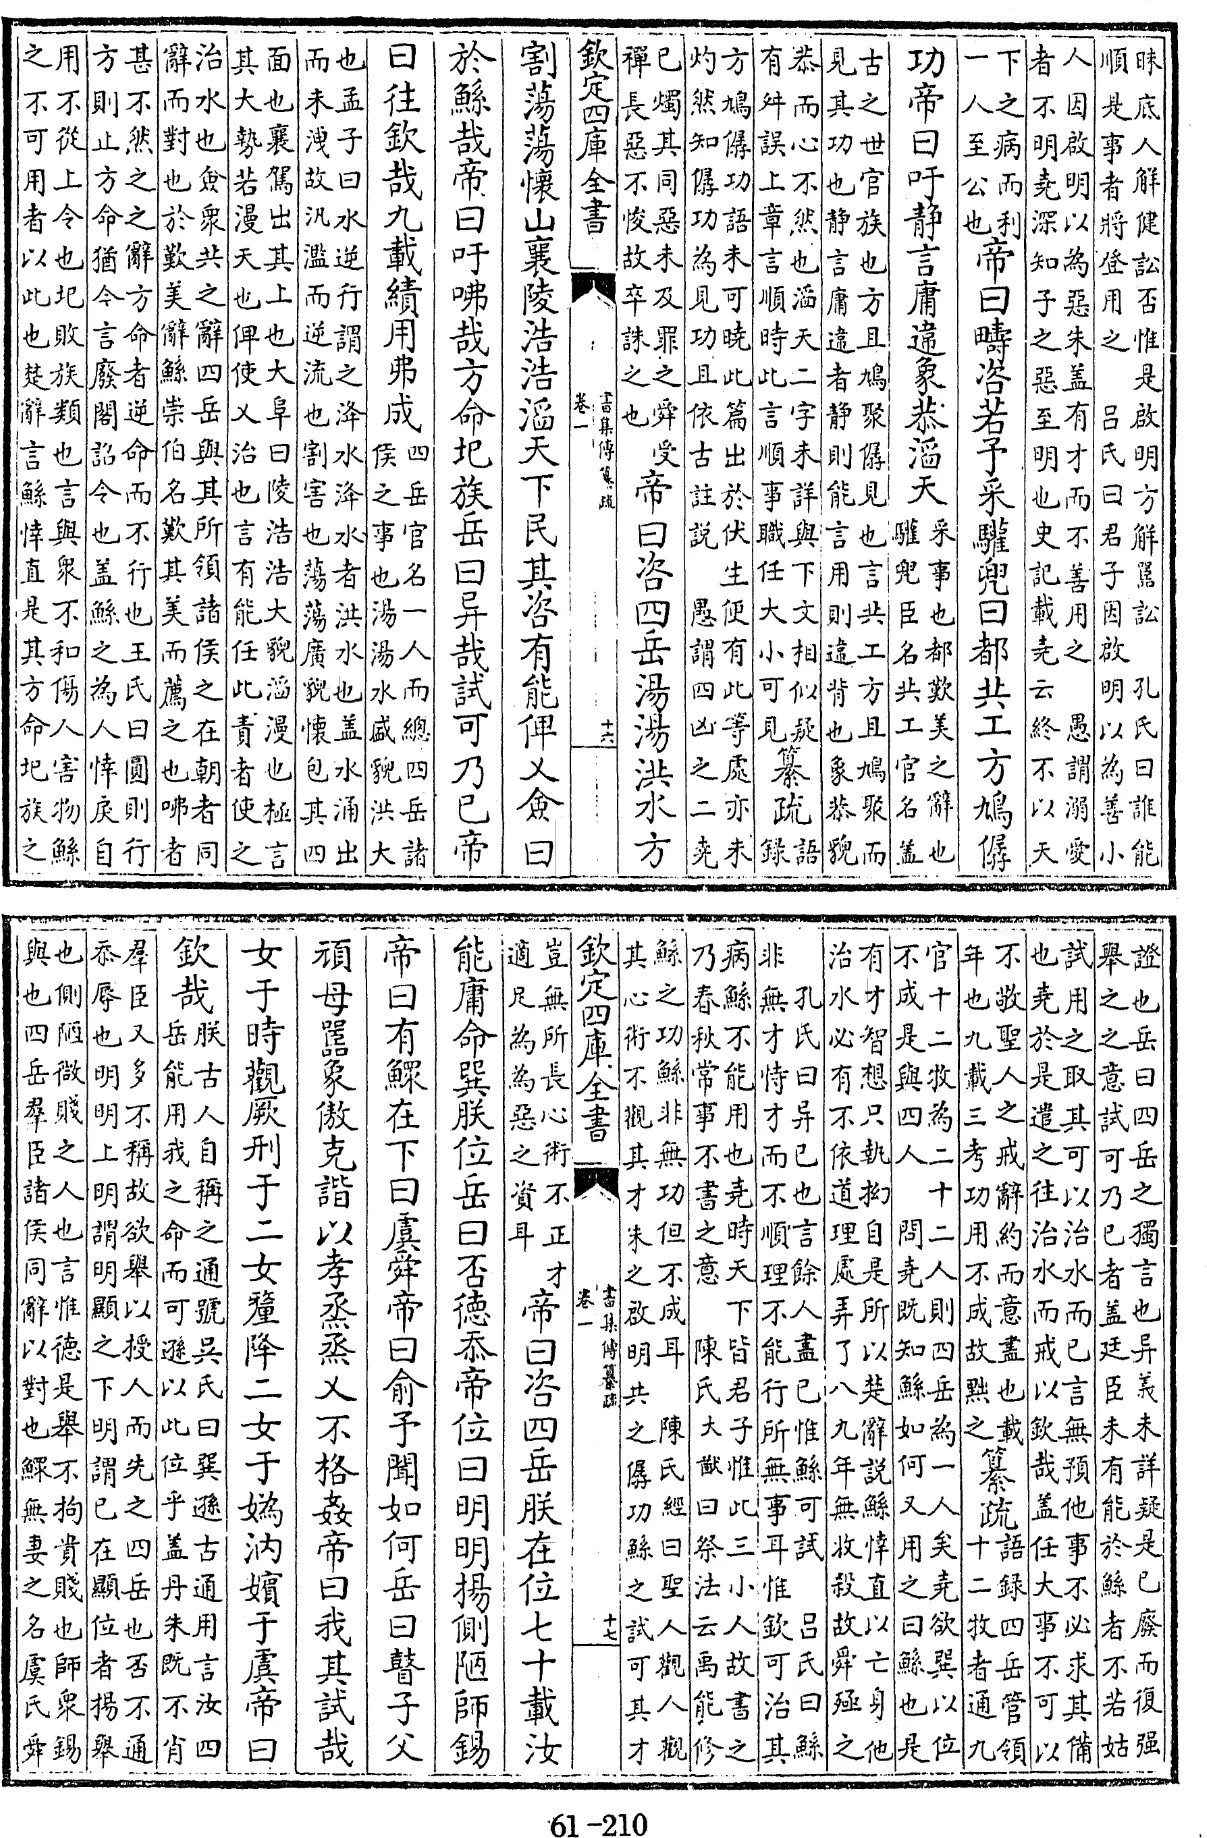 昧底人解健訟否惟是啟明方解嚚訟　孔氏曰誰能
順是事者將登用之　呂氏曰君子因啟明以為善小
人因啟明以為惡朱蓋有才而不善用之　愚謂溺愛
者不明堯深知子之惡至明也史記載堯云終不以天
下之病而利
一人至公也
帝曰疇咨若予采驩兜曰都共工方鳩僝
功帝曰吁靜言庸違象恭滔天
采事也都歎美之辭也
驩兜臣名共工官名蓋
古之世官族也方且鳩聚僝見也言共工方且鳩聚而
見其功也靜言庸違者靜則能言用則違背也象恭貌
恭而心不然也滔天二字未詳與下文相似疑
有舛誤上章言順時此言順事職任大小可見
纂疏
語
錄
方鳩僝功語未可曉此篇出於伏生便有此等處亦未
灼然知僝功為見功且依古註說　愚謂四凶之二堯
已燭其同惡未及罪之舜受
禪長惡不悛故卒誅之也
帝曰咨四岳湯湯洪水方
欽定四庫全書
書集傳纂疏
卷一
十六
割蕩蕩懷山襄陵浩浩滔天下民其咨有能俾乂僉曰
於鯀哉帝曰吁咈哉方命圮族岳曰异哉試可乃已帝
曰往欽哉九載績用弗成
四岳官名一人而總四岳諸
侯之事也湯湯水盛貌洪大
也孟子曰水逆行謂之洚水洚水者洪水也蓋水涌出
而未洩故汎濫而逆流也割害也蕩蕩廣貌懷包其四
面也襄駕出其上也大阜曰陵浩浩大貌滔漫也極言
其大勢若漫天也俾使乂治也言有能任此責者使之
治水也僉衆共之辭四岳與其所領諸侯之在朝者同
辭而對也於歎美辭鯀崇伯名歎其美而薦之也咈者
甚不然之之辭方命者逆命而不行也王氏曰圓則行
方則止方命猶今言廢閣詔令也蓋鯀之為人悻戾自
用不從上令也圮敗族類也言與衆不和傷人害物鯀
之不可用者以此也楚辭言鯀悻直是其方命圮族之
證也岳曰四岳之獨言也异義未詳疑是已廢而復强
舉之之意試可乃已者蓋廷臣未有能於鯀者不若姑
試用之取其可以治水而已言無預他事不必求其備
也堯於是遣之往治水而戒以欽哉蓋任大事不可以
不敬聖人之戒辭約而意盡也載
年也九載三考功用不成故黜之
纂疏
語錄四岳管領
十二牧者通九
官十二牧為二十二人則四岳為一人矣堯欲巽以位
不成是與四人　問堯既知鯀如何又用之曰鯀也是
有才智想只執拗自是所以楚辭說鯀悻直以亡身他
治水必有不依道理處弄了八九年無收殺故舜殛之
　孔氏曰异已也言餘人盡已惟鯀可試　呂氏曰鯀
非無才恃才而不順理不能行所無事耳惟欽可治其
病鯀不能用也堯時天下皆君子惟此三小人故書之
乃春秋常事不書之意　陳氏大猷曰祭法云禹能修
鯀之功鯀非無功但不成耳　陳氏經曰聖人觀人觀
其心術不觀其才朱之啟明共之僝功鯀之試可其才
欽定四庫全書
書集傳纂疏
卷一
十七
豈無所長心術不正才
適足為為惡之資耳
帝曰咨四岳朕在位七十載汝
能庸命巽朕位岳曰否德忝帝位曰明明揚側陋師錫
帝曰有鰥在下曰虞舜帝曰俞予聞如何岳曰瞽子父
頑母嚚象傲克諧以孝烝烝乂不格姦帝曰我其試哉
女于時觀厥刑于二女釐降二女于媯汭嬪于虞帝曰
欽哉
朕古人自稱之通號吳氏曰巽遜古通用言汝四
岳能用我之命而可遜以此位乎蓋丹朱既不肖
羣臣又多不稱故欲舉以授人而先之四岳也否不通
忝辱也明明上明謂明顯之下明謂已在顯位者揚舉
也側陋微賤之人也言惟德是舉不拘貴賤也師衆錫
與也四岳羣臣諸侯同辭以對也鰥無妻之名虞氏舜
61-210